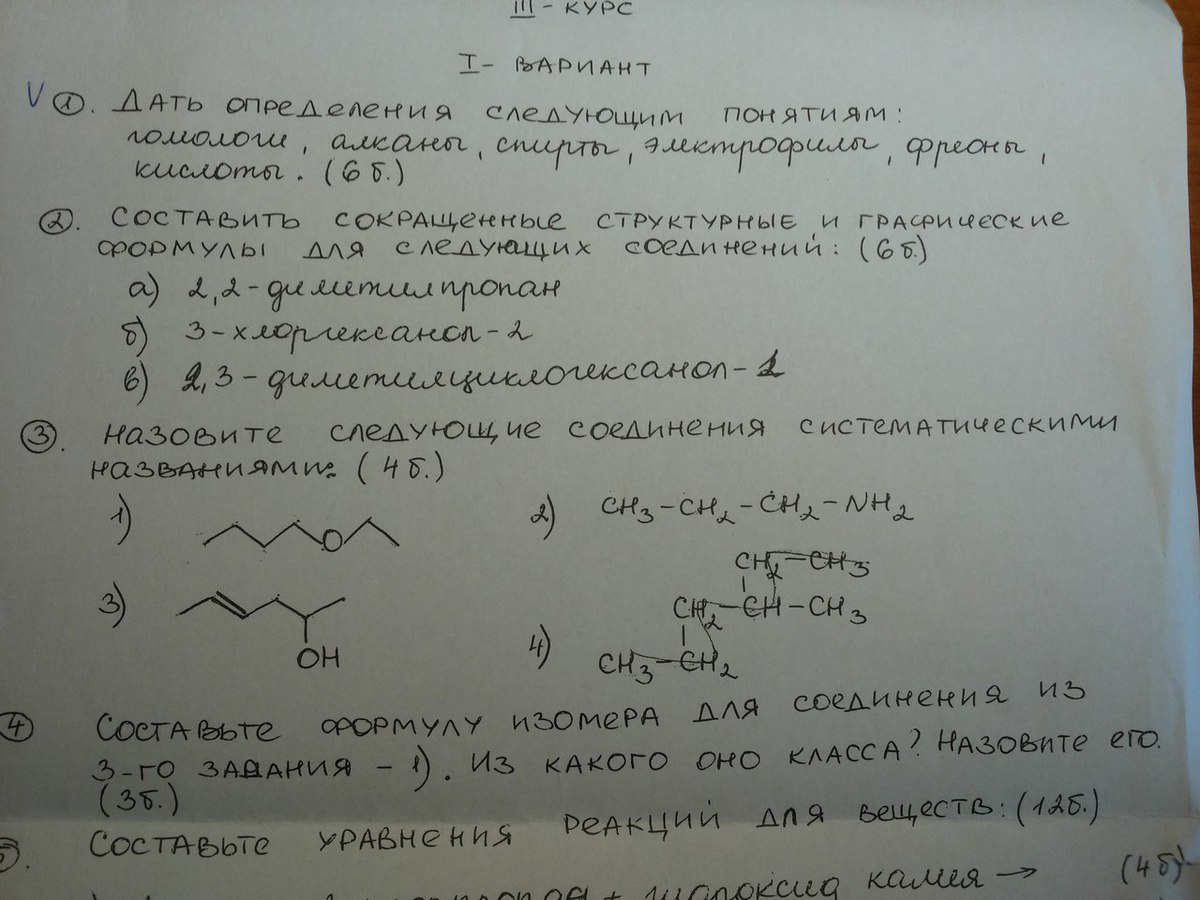 III - КУРС
I - ВАРИАНТ
V 1. ДАТЬ ОПРЕДЕЛЕНИЯ СЛЕДУЮЩИМ ПОНЯТИЯМ:
гомологи, алканы, спирты, электрофилы, фреоны,
кислоты. (6 б.)
2. СОСТАВИТЬ СОКРАЩЕННЫЕ СТРУКТУРНЫЕ И ГРАФИЧЕСКИЕ
ФОРМУЛЫ ДЛЯ СЛЕДУЮЩИХ СОЕДИНЕНИЙ: (6 б.)
а) 2,2-диметилпропан
б) 3-хлоргексанол-2
в) 2,3-диметилциклогексанол-1
3. НАЗОВИТЕ СЛЕДУЮЩИЕ СОЕДИНЕНИЯ СИСТЕМАТИЧЕСКИМИ
НАЗВАНИЯМИ: (4 б.)
1) O 2) CH3-CH2-CH2-NH2
CH2-CH3
3) CH2-CH-CH3
OH 4) CH3-CH2
4 СОСТАВЬТЕ ФОРМУЛУ ИЗОМЕРА ДЛЯ СОЕДИНЕНИЯ ИЗ
3-ГО ЗАДАНИЯ - 1). ИЗ КАКОГО ОНО КЛАССА? НАЗОВИТЕ ЕГО.
(3 б.)
5. СОСТАВЬТЕ УРАВНЕНИЯ РЕАКЦИЙ ДЛЯ ВЕЩЕСТВ: (12 б.)
калия → (4 б)